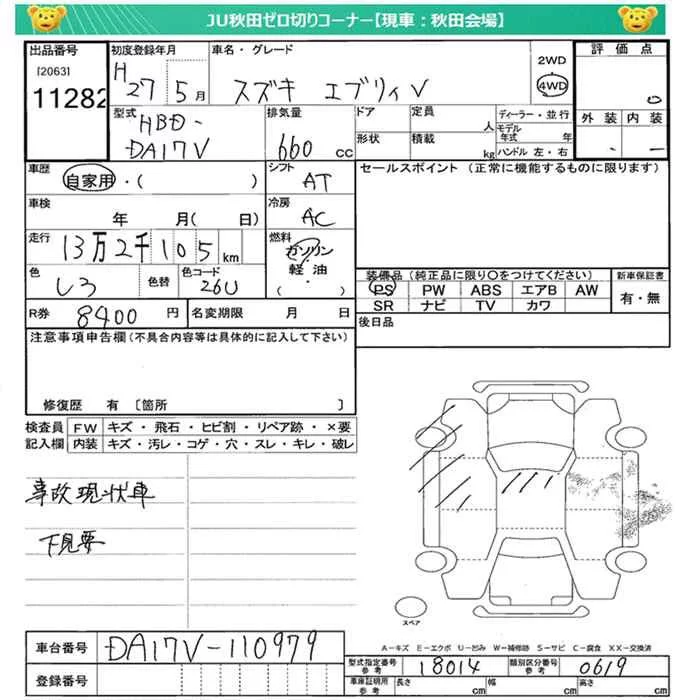 JU秋田ゼロ切りコーナー【現車：秋田会場】
出品番号
[2063]
11282
初度登録年月
H 27年 5月
車名・グレード
スズキ エブリィV
2WD
4WD
評価点
0
外装 内装
- -
型式
HBD-
DA17V
排気量
660 cc
ドア
形状
定員 人
積載 kg
ディーラー・並行
モデル年式 年
ハンドル 左・右
車歴
自家用・( )
シフト
AT
セールスポイント (正常に機能するものに限ります)
車検
年 月( 日)
冷房
AC
走行
13万2千105km
燃料
ガソリン
軽・油
( ・ )
色
しろ
色替
色コード
26U
装備品 (純正品に限り○をつけてください)
PS PW ABS エアB AW
SR ナビ TV カワ
新車保証書
有・無
R券 8400 円
名変期限 月 日
後日品
注意事項申告欄 (不具合内容等は具体的に記入して下さい)
修復歴 有 〔箇所 〕
検査員記入欄
FW キズ・飛石・ヒビ割・リペア跡・×要
内装 キズ・汚レ・コゲ・穴・スレ・キレ・破レ
事故現状車
下見要
スペア
A-キズ E-エクボ U-凹み W-補修跡 S-サビ C-腐食 XX-交換済
車台番号 DA17V-110979
登録番号
型式指定番号 参考 18014
類別区分番号 参考 0619
車庫証明用 参考 長さ cm 幅 cm 高さ cm